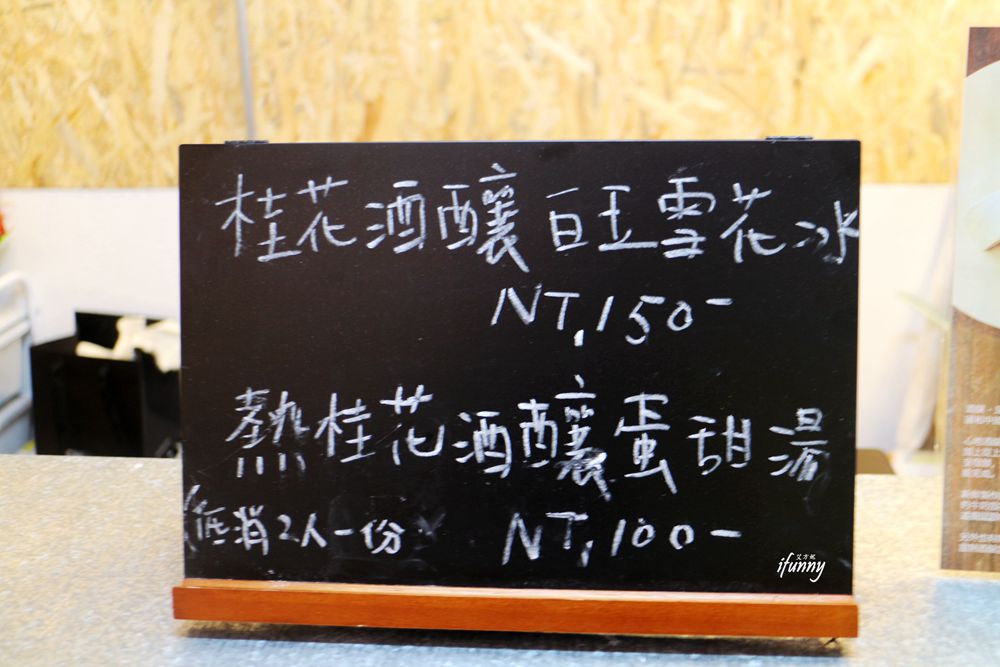 桂花酒釀白玉雪花冰
NT.150-
熱桂花酒釀蛋甜湯
低消2人一份
NT.100-
艾方妮
ifunny